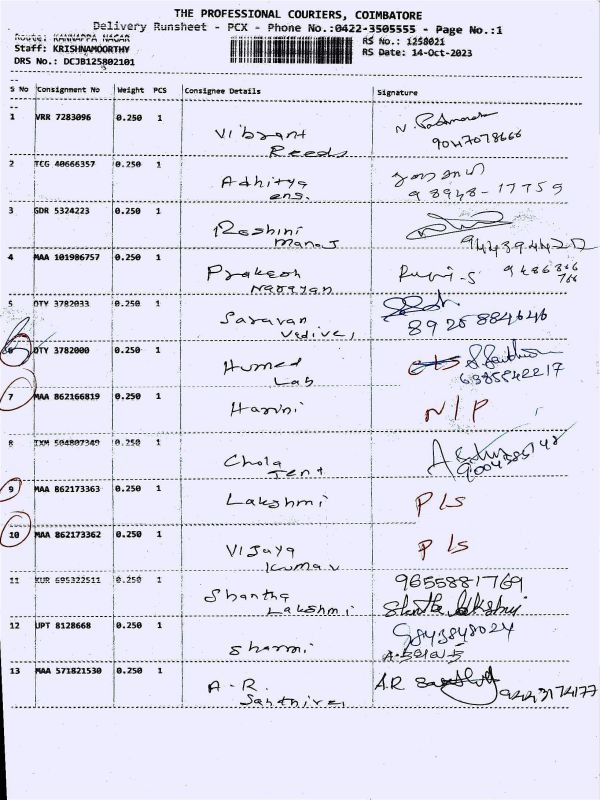 THE PROFESSIONAL COURIERS, COIMBATORE
Delivery Runsheet - PCX - Phone No.:0422-3505555 - Page No.:1
Route: KANNAPPA NAGAR
Staff: KRISHNAMOORTHY
DRS No.: DCJB125802101
RS No.: 1258021
RS Date: 14-Oct-2023
S No Consignment No Weight PCS Consignee Details Signature
1 VRR 7283096 0.250 1 Vibrant
Reeds
9047078666
2 TCG 40666357 0.250 1 Adhitya
eng.
98948-17759
3 GDR 5324223 0.250 1 Roshini
Manoj
4 MAA 101986757 0.250 1 Prakash
Narayan
9486866
766
5 DTY 3782033 0.250 1 Saravan
Vadivel
8925884646
6 DTY 3782000 0.250 1 Humed
Lab
6385542217
7 MAA 862166819 0.250 1 Harini N/P
8 IXM 504807349 0.250 1 Chola
Tent
9 MAA 862173363 0.250 1 Lakshmi P/S
10 MAA 862173362 0.250 1 Vijaya
Kumar
P/S
11 KUR 695322511 0.250 1 Shantha
Lakshmi
9655881769
12 UPT 8128668 0.250 1 Sharmi
9843848024
13 MAA 571821530 0.250 1 A.R.
Santhivel
A.R
92443174177